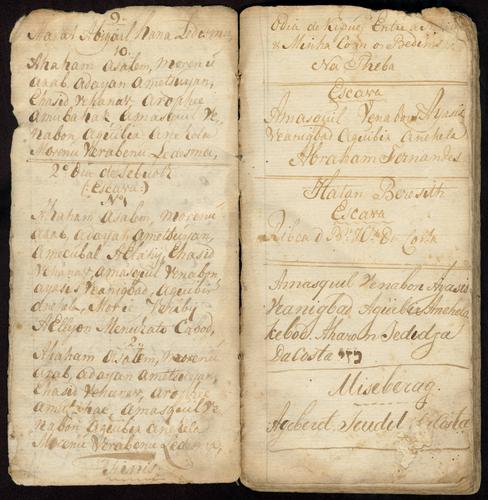 9.
Hanah Abigail Hana Ledesma,
10.
Ahaham Asalem, Morenu
aaab, adayan Ametsuyan,
Chasid Vehanav, Arophe
Amubahar Amasquil Ve
nabon, Aguebia Anekela
Morenu Verabenu Ledesma,
2º Dia de Sebuoth
(Escava)
Nº 1
Ahaham Asalem, Morenu
aaab, adayan Ametsuyan,
Amecubal Aelahy, Chasid
Vehanav, amasquil Venabon,
ayases Veanigbad, Aguebir
anekela, More Veraby
AEllyon Menuhato Cabod,
2
Ahaham Asalem, Morenu
aaab, adayan ametsuyan,
Chasid Vehanav, arophe
amubhae, Amasquil Ve
nabon Aguebia anekela
Morenu Verabenu Ledesma,
Finis
Odia de Kipur Entre a
& Minha Com os Bedims
Na Theba
Escava
Amasquil Venabon Ayasis
Veanigbad Aguebir Anekela
Abraham Fernandes
Hatan Beresith
Escava
Ribca d Da Costa
Amasquil Venabon Ayasis
Veanigbad Aguebir Anekela
kebod Aharon Jedidja
DaCosta
Miseberag.
Agebert Jeudit DaCosta